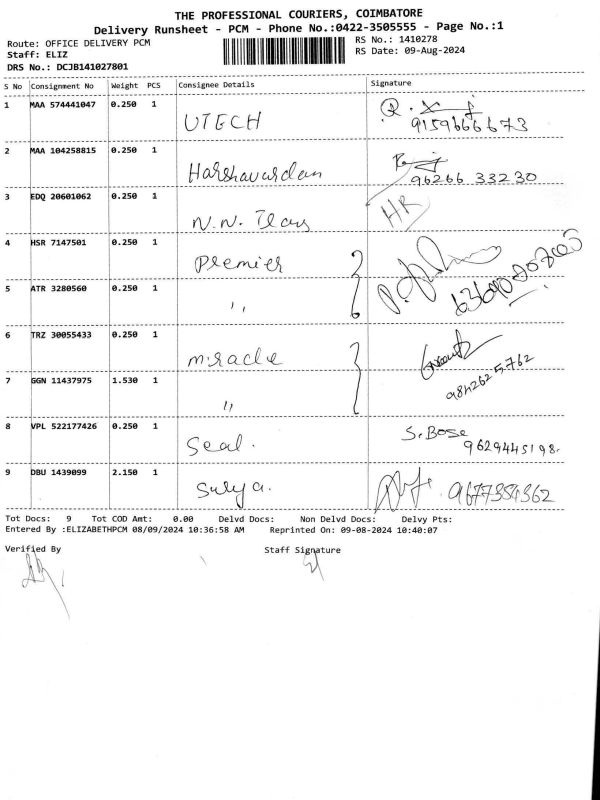 THE PROFESSIONAL COURIERS, COIMBATORE
Delivery Runsheet - PCM - Phone No.:0422-3505555 - Page No.:1
Route: OFFICE DELIVERY PCM RS No.: 1410278
Staff: ELIZ RS Date: 09-Aug-2024
DRS No.: DCJB141027801
S No Consignment No Weight PCS Consignee Details Signature
1 MAA 574441047 0.250 1 UTECH 9159666673
2 MAA 104258815 0.250 1 Harshavardan 96266 33230
3 EDQ 20601062 0.250 1 N.N. HR
4 HSR 7147501 0.250 1 Premier
5 ATR 3280560 0.250 1 ,,
6 TRZ 30055433 0.250 1 miracle
7 GGN 11437975 1.530 1 ,, 9842625762
8 VPL 522177426 0.250 1 Seal. S. Bose 9629445198.
9 DBU 1439099 2.150 1 Surya. 9677384362
Tot Docs: 9 Tot COD Amt: 0.00 Delvd Docs: Non Delvd Docs: Delvy Pts:
Entered By :ELIZABETHPCM 08/09/2024 10:36:58 AM Reprinted On: 09-08-2024 10:40:07
Verified By Staff Signature